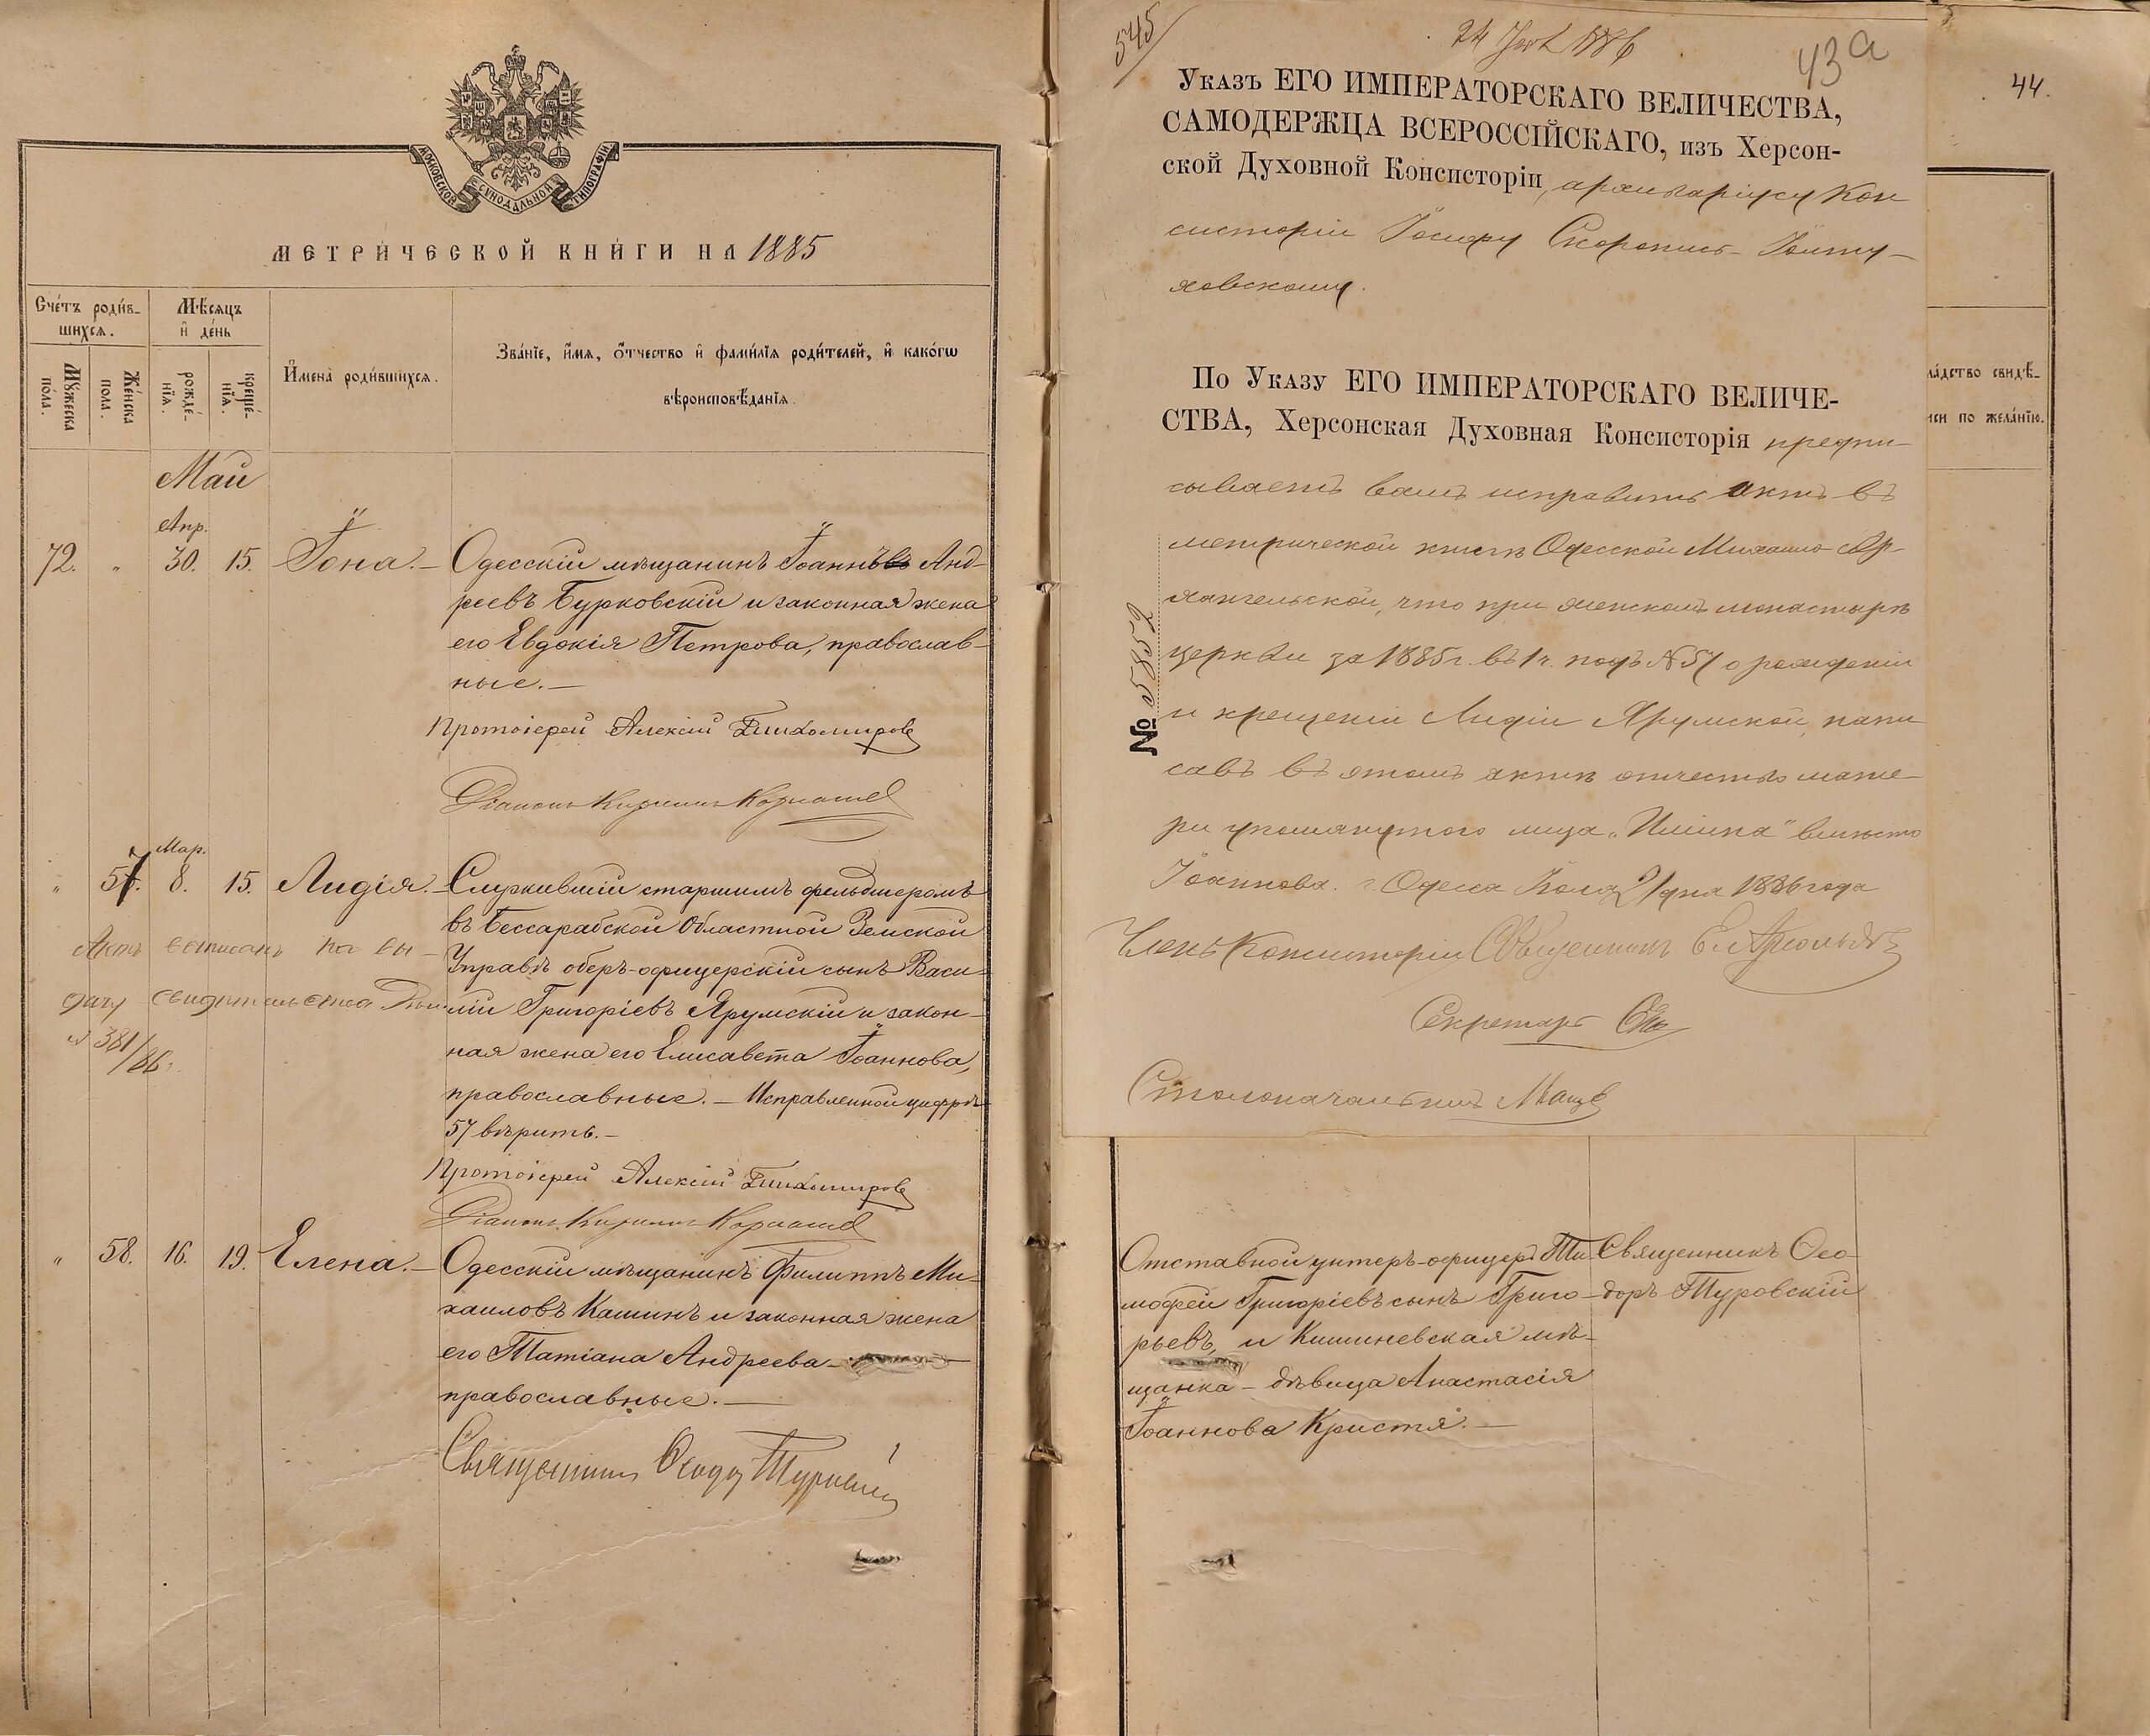 МОСКОВСКОЙ СѴНОДАЛЬНОЙ ТИПОГРАФІИ
МЕТРИ́ЧЕСКОЙ КНИ́ГИ НА 1885
Сче́тъ роди́в-
шихсѧ.
Мѣ́сѧцъ
и҆ де́нь
Мꙋ́жеска
по́ла.
Же́нска
пола.
рожде́-
нїѧ.
креще́-
нїѧ.
И҆мена̀ роди́вшихсѧ.
Зва́нїе, и҆́мѧ, ѻ҆́тчество и҆ фами́лїѧ роди́телей, и҆ како́гѡ
вѣроисповѣ́данїѧ.
Май
Апр.
72. " 30. 15. Іона. — Одесскій мѣщанинъ Іоаннъ Анд-
реевъ Бурковскій и законная жена
его Евдокія Петрова, православ-
ные. —
Протоіерей Алексій Тихомировъ
Діаконъ Кириллъ
Мар.
" 57. 8. 15. Лидія. — Служившій старшимъ фельдшеромъ
въ Бессарабской Областной Земской
Управѣ оберъ-офицерскій сынъ Васи-
лій Григоріевъ Ярумскій и закон-
ная жена его Елисавета Іоаннова,
православные. — Исправленной цифрѣ
57 вѣрить. —
Актъ выписанъ на вы-
дачу свидѣтельства
№ 381/86 г.
Протоіерей Алексій Тихомировъ
Діаконъ Кириллъ
" 58. 16. 19. Елена. — Одесскій мѣщанинъ Филиппъ Ми-
хаиловъ Кашинъ и законная жена
его Татіана Андреева —
православные. —
Священникъ Ѳеодоръ Туровскій
545/
24 1886
43а
Указъ ЕГО ИМПЕРАТОРСКАГО ВЕЛИЧЕСТВА,
САМОДЕРЖЦА ВСЕРОССІЙСКАГО, изъ Херсон-
ской Духовной Консисторіи, архиваріусу Кон
систоріи Іосифу Скоропись-Іолту-
ховскому.
По Указу ЕГО ИМПЕРАТОРСКАГО ВЕЛИЧЕ-
СТВА, Херсонская Духовная Консисторія предпи-
сываетъ вамъ исправить актъ въ
метрической книгѣ Одесской Михаило-Ар-
хангельской, что при женскомъ монастырѣ
церкви за 1885 г. въ 1 ч. подъ № 57 о рожденіи
и крещеніи Лидіи Ярумской, напи
савъ въ этомъ актѣ отчество мате-
ри упомянутаго лица „Иліина" вмѣсто
Іоаннова. г. Одесса Іюля 21 дня 1886 года
№ 5852
Членъ Консисторіи Священникъ
Секретарь
Столоначальникъ
44.
ла́дство свидѣ́-
иси по жела́нїю.
Отставной унтеръ-офицеръ Ти-
мофей Григоріевъ сынъ Григо-
рьевъ, и Кишиневская мѣ-
щанка — дѣвица Анастасія
Іоаннова Кристя. —
Священникъ Ѳео-
доръ Туровскій